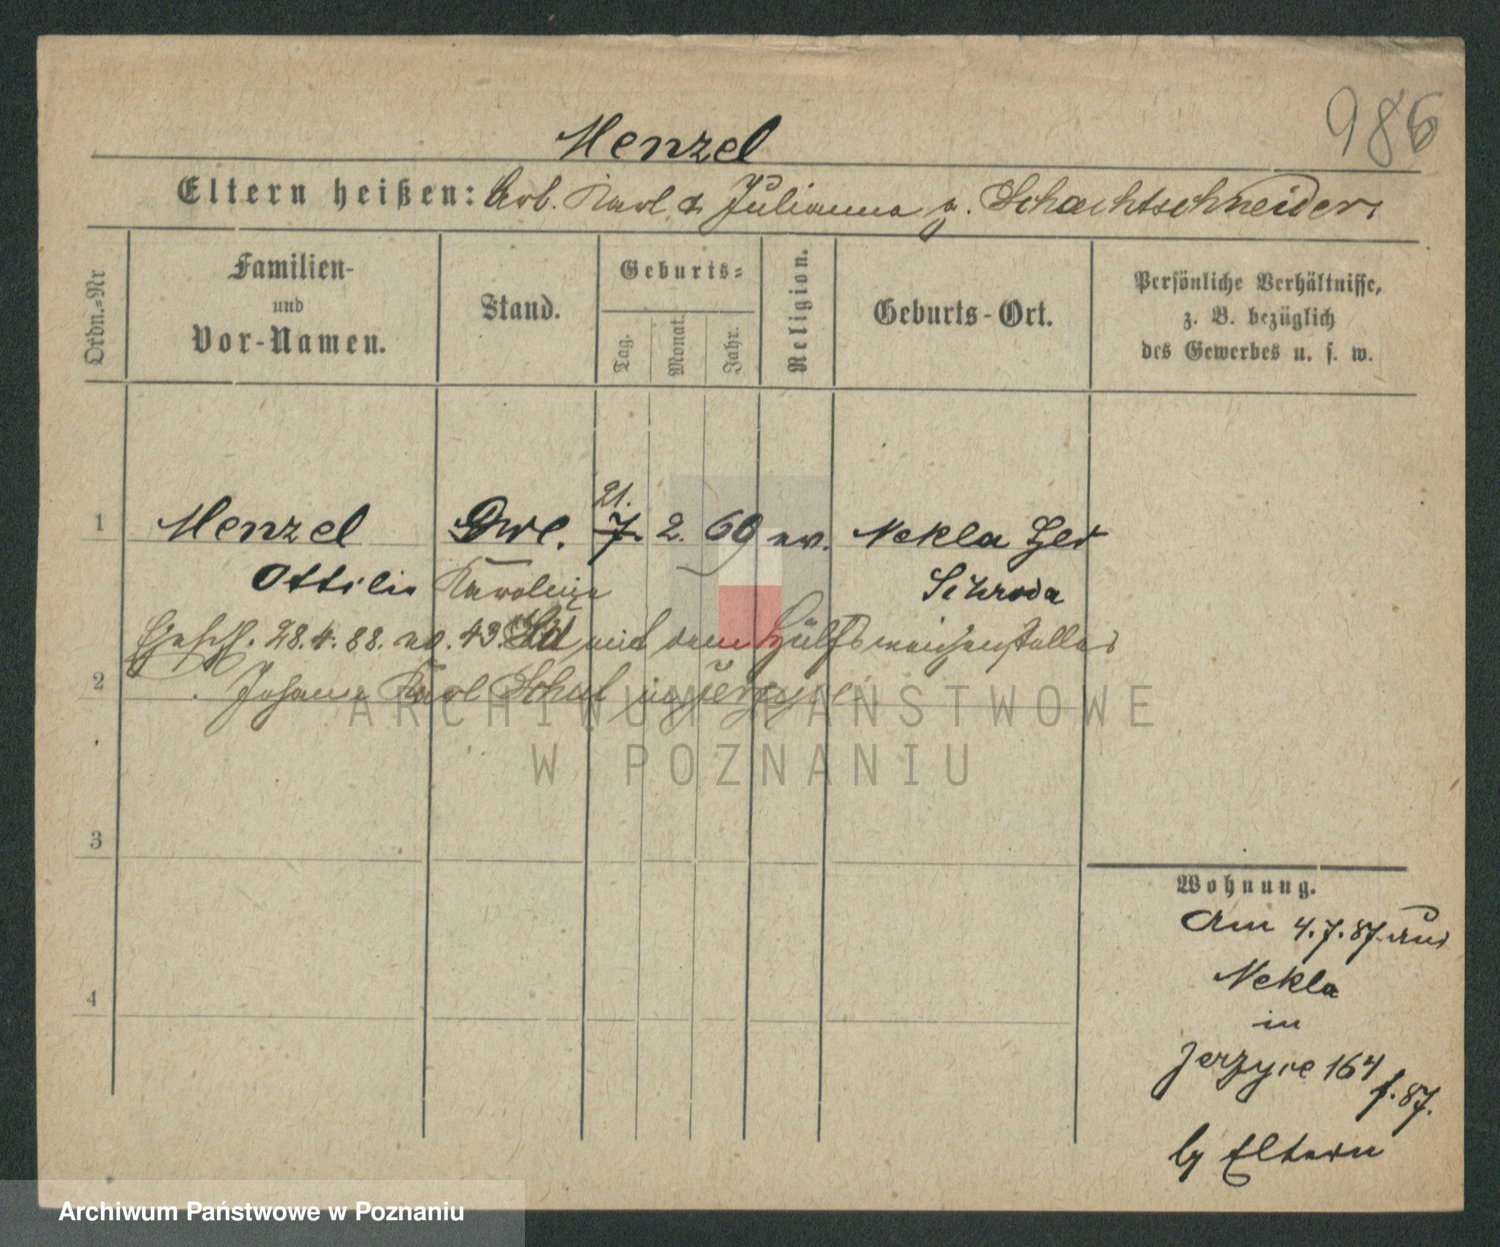 986
Menzel
Eltern heißen: Arb. Karl & Julianna g. Schachtschneider
Ordn.=Nr
Familien-
und
Vor-Namen.
Stand.
Geburts=
Tag.
Monat.
Jahr.
Religion.
Geburts-Ort.
Persönliche Verhältnisse,
z. B. bezüglich
des Gewerbes u. s. w.
21.
1 Menzel 7. 2. 69 ev. Nekla
Ottilie Karoline Schroda
28.4.88. no. 43. mit dem Hülfsweichensteller
2 Johann Karl in
ARCHIWUM PAŃSTWOWE
W POZNANIU
3
4
Wohnung.
Am 4.7.87 aus
Nekla
in
Jerzyce 164
f. 87.
by Eltern
Archiwum Państwowe w Poznaniu